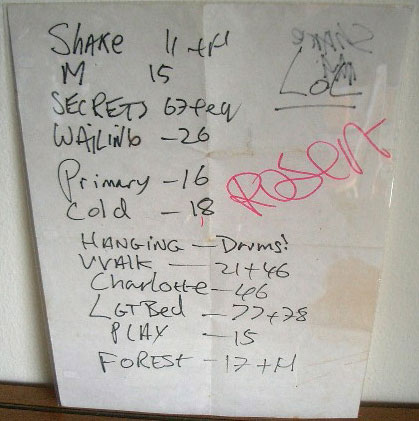 SHAKE 11 + M
M 15
LOL
SECRETS 67 + eq
WAILING - 26
ROBERT
Primary - 16
Cold - 18
HANGING - Drums!
WALK - 21 + 46
Charlotte - 46
LGTBed - 77 + 78
PLAY - 15
FOREST - 17 + M